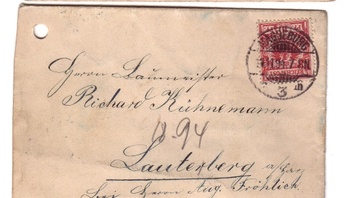 Herrn Baumeister
Richard Kühnemann
10.94
Lauterberg a/Harz
bei Herrn Aug. Fröhlich
MAGDEBURG
3